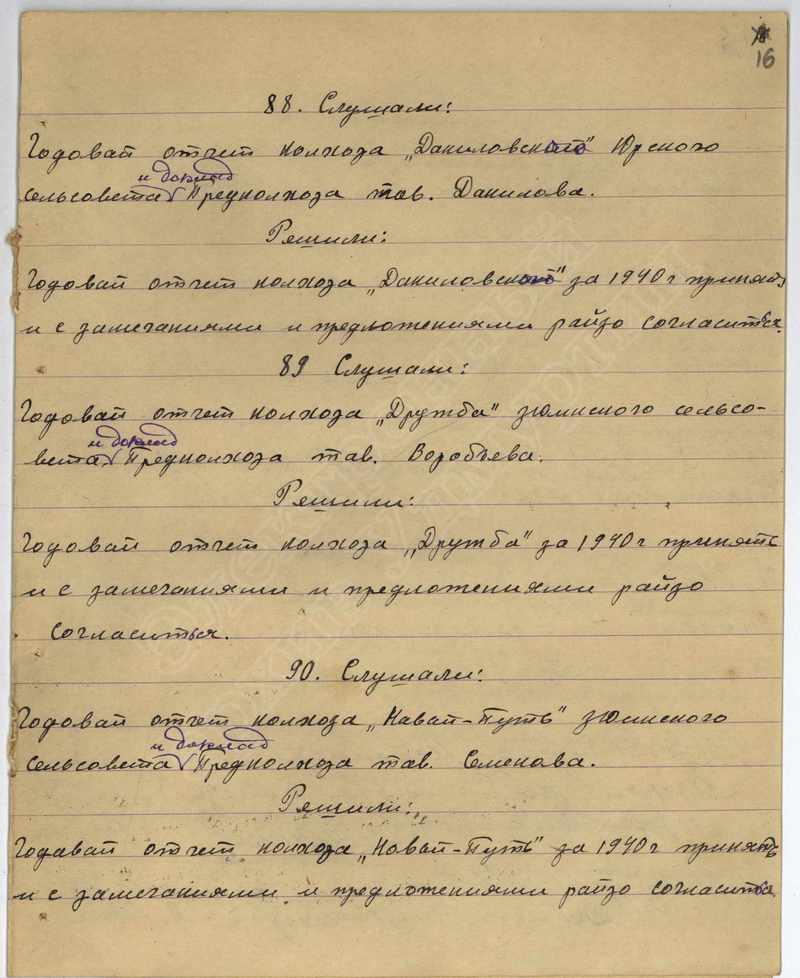 16
88. Слушали:
Годовай отчет колхоза „Даниловский" Юрского
и доклад
сельсовета Предколхоза тов. Данилова.
Решили:
Годовай отчет колхоза „Даниловский" за 1940 г принять
и с замечаниями и предложениями райзо согласиться.
89 Слушали:
Годовай отчет колхоза „Дружба" зюинского сельсо-
и доклад
вета Предколхоза тов. Воробъева.
Решили:
Годовай отчет колхоза „Дружба" за 1940 г принять
и с замечаниями и предложениями райзо
согласиться.
90. Слушали:
Годовай отчет колхоза „Новай-Путь" зюинского
и доклад
сельсовета Предколхоза тов. Семенова.
Решили:
Годавай отчет колхоза „Новай-Путь" за 1940 г принять
и с замечаниями и предложениями райзо согласиться